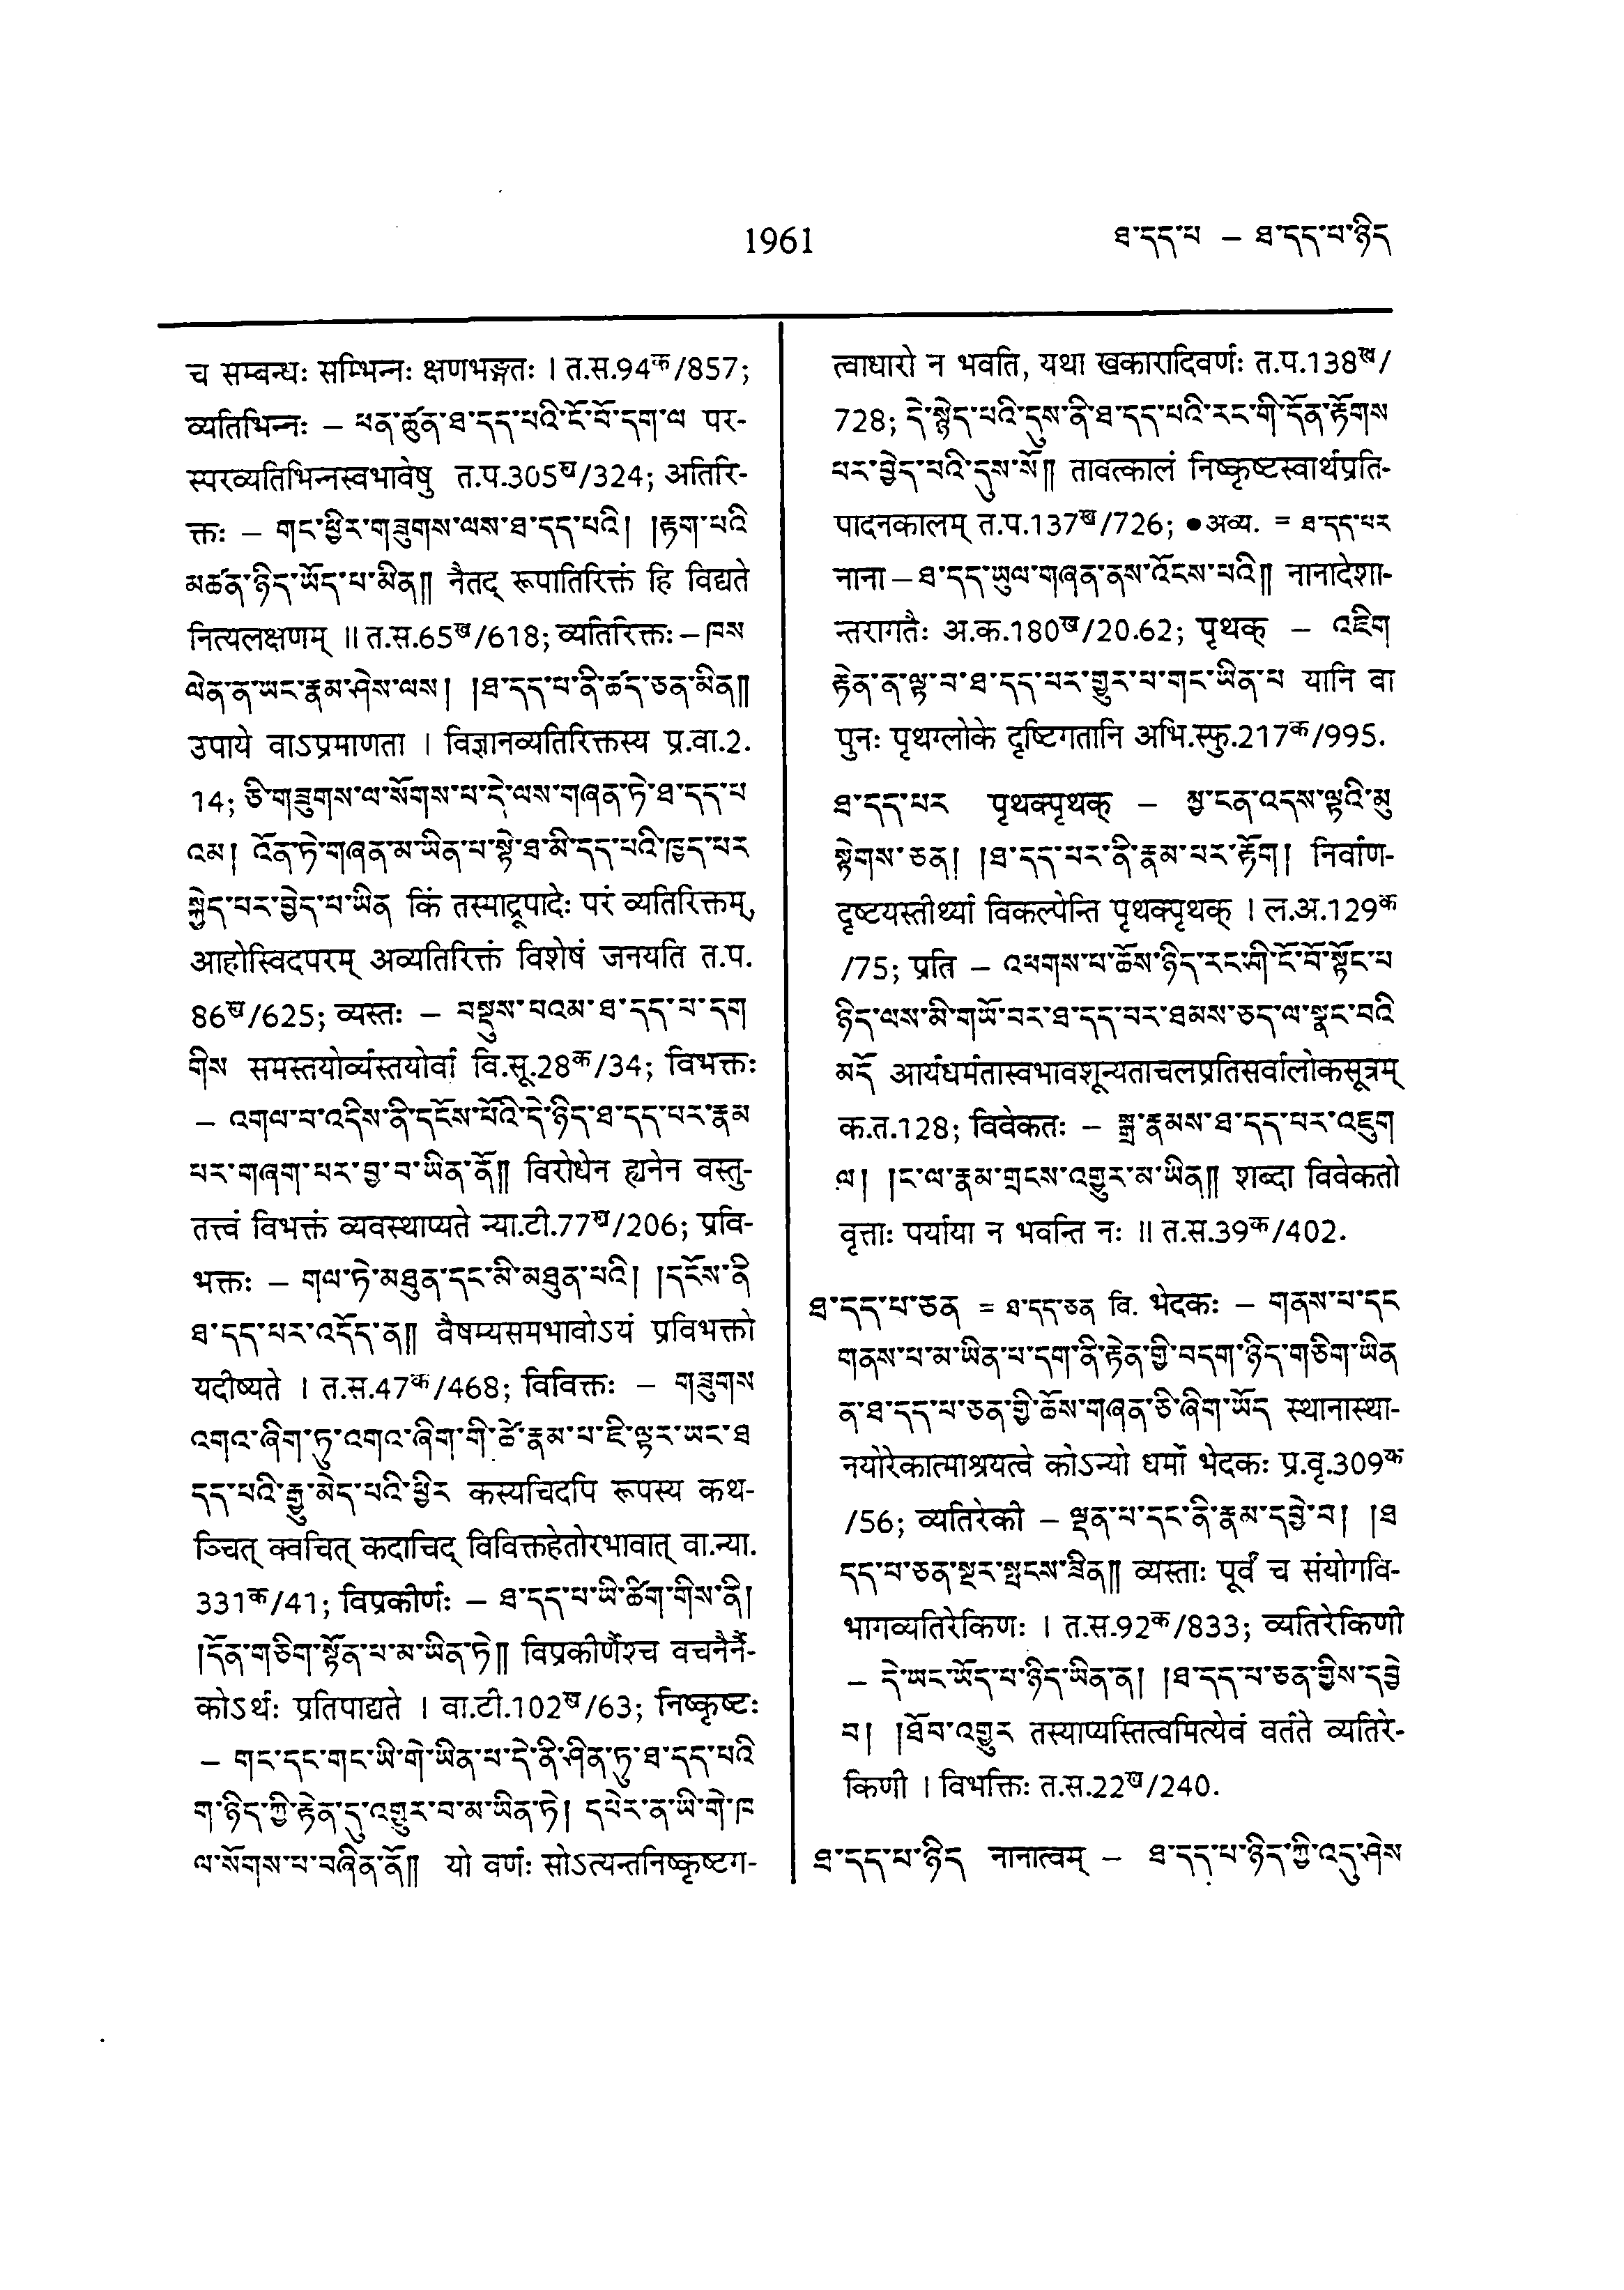 1961
ཐ་དད་པ – ཐ་དད་པ་ཉིད
च सम्बन्धः सम्भिन्नः क्षणभङ्गतः । त.स.94क/857;
व्यतिभिन्नः – ཕན་ཚུན་ཐ་དད་པའི་ངོ་བོ་དག་ལ པར-
स्परव्यतिभिन्नस्वभावेषु त.प.305ख/324; अतिरि-
क्तः – གང་ཕྱིར་གཟུགས་ལས་ཐ་དད་པའི། །རྟག་པའི
མཚན་ཉིད་ཡོད་པ་མིན༎ नैतद् रूपातिरिक्तं हि विद्यते
नित्यलक्षणम् ॥ त.स.65ख/618; व्यतिरिक्तः – ཁས
ལེན་ན་ཡང་རྣམ་ཤེས་ལས། །ཐ་དད་པ་ནི་ཚད་ཅན་མིན༎
उपाये वाऽप्रमाणता । विज्ञानव्यतिरिक्तस्य प्र.वा.2.
14; ཅི་གཟུགས་ལ་སོགས་པ་དེ་ལས་གཞན་ཏེ་ཐ་དད་པ
འམ། འོན་ཏེ་གཞན་མ་ཡིན་པ་སྟེ་ཐ་མི་དད་པའི་ཁྱད་པར
སྐྱེད་པར་བྱེད་པ་ཡིན किं तस्माद्रूपादेः परं व्यतिरिक्तम्,
आहोस्विदपरम् अव्यतिरिक्तं विशेषं जनयति त.प.
86ख/625; व्यस्तः – བསྡུས་པའམ་ཐ་དད་པ་དག
གིས समस्तयोर्व्यस्तयोर्वा वि.सू.28क/34; विभक्तः
– འགལ་བ་འདིས་ནི་དངོས་པོའི་དེ་ཉིད་ཐ་དད་པར་རྣམ
པར་གཞག་པར་བྱ་བ་ཡིན་ནོ༎ विरोधेन ह्यनेन वस्तु-
तत्त्वं विभक्तं व्यवस्थाप्यते न्या.टी.77ख/206; प्रवि-
भक्तः – གལ་ཏེ་མཐུན་དང་མི་མཐུན་པའི། །དངོས་ནི
ཐ་དད་པར་འདོད་ན༎ वैषम्यसमभावोऽयं प्रविभक्तो
यदीष्यते । त.स.47क/468; विविक्तः – གཟུགས
འགའ་ཞིག་ཏུ་འགའ་ཞིག་གི་ཚེ་རྣམ་པ་ཇི་ལྟར་ཡང་ཐ
དད་པའི་རྒྱུ་མེད་པའི་ཕྱིར कस्यचिदपि रूपस्य कथ-
ञ्चित् क्वचित् कदाचिद् विविक्तहेतोरभावात् वा.न्या.
331क/41; विप्रकीर्णः – ཐ་དད་པ་ཡི་ཚིག་གིས་ནི།
།དོན་གཅིག་སྟོན་པ་མ་ཡིན་ཏེ༎ विप्रकीर्णैश्च वचनैर्नै-
कोऽर्थः प्रतिपाद्यते । वा.टी.102ख/63; निष्कृष्टः
– གང་དང་གང་ཡི་གེ་ཡིན་པ་དེ་ནི་ཤིན་ཏུ་ཐ་དད་པའི
ག་ཉིད་ཀྱི་རྟེན་དུ་འགྱུར་བ་མ་ཡིན་ཏེ། དཔེར་ན་ཡི་གེ་ཁ
ལ་སོགས་པ་བཞིན་ནོ༎ यो वर्णः सोऽत्यन्तनिष्कृष्टग-
त्वाधारो न भवति, यथा खकारादिवर्णः त.प.138ख/
728; དེ་སྙེད་པའི་དུས་ནི་ཐ་དད་པའི་རང་གི་དོན་རྟོགས
པར་བྱེད་པའི་དུས་སོ༎ तावत्कालं निष्कृष्टस्वार्थप्रति-
पादनकालम् त.प.137ख/726; ●अव्य. = ཐ་དད་པར
नाना – ཐ་དད་ཡུལ་གཞན་ནས་འོངས་པའི༎ नानादेशा-
न्तरागतैः अ.क.180ख/20.62; पृथक् – འཇིག
རྟེན་ན་ལྟ་བ་ཐ་དད་པར་གྱུར་པ་གང་ཡིན་པ यानि वा
पुनः पृथग्लोके दृष्टिगतानि अभि.स्फु.217क/995.
ཐ་དད་པར पृथक्पृथक् – མྱ་ངན་འདས་ལྟའི་མུ
སྟེགས་ཅན། །ཐ་དད་པར་ནི་རྣམ་པར་རྟོག། निर्वाण-
दृष्टयस्तीर्थ्या विकल्पेन्ति पृथक्पृथक् । ल.अ.129क
/75; प्रति – འཕགས་པ་ཆོས་ཉིད་རང་གི་ངོ་བོ་སྟོང་པ
ཉིད་ལས་མི་གཡོ་བར་ཐ་དད་པར་ཐམས་ཅད་ལ་སྣང་བའི
མདོ आर्यधर्मतास्वभावशून्यताचलप्रतिसर्वालोकसूत्रम्
क.त.128; विवेकतः – སྒྲ་རྣམས་ཐ་དད་པར་འཇུག
ལ། །ང་ལ་རྣམ་གྲངས་འགྱུར་མ་ཡིན༎ शब्दा विवेकतो
वृत्ताः पर्याया न भवन्ति नः ॥ त.स.39क/402.
ཐ་དད་པ་ཅན = ཐ་དད་ཅན वि. भेदकः – གནས་པ་དང
གནས་པ་མ་ཡིན་པ་དག་ནི་རྟེན་གྱི་བདག་ཉིད་གཅིག་ཡིན
ན་ཐ་དད་པ་ཅན་གྱི་ཆོས་གཞན་ཅི་ཞིག་ཡོད स्थानास्था-
नयोरेकात्माश्रयत्वे कोऽन्यो धर्मो भेदकः प्र.वृ.309क
/56; व्यतिरेकी – ལྡན་པ་དང་ནི་རྣམ་དབྱེ་བ། །ཐ
དད་པ་ཅན་སྔར་སྤངས་ཟིན༎ व्यस्ताः पूर्वं च संयोगवि-
भागव्यतिरेकिणः । त.स.92क/833; व्यतिरेकिणी
– དེ་ཡང་ཡོད་པ་ཉིད་ཡིན་ན། །ཐ་དད་པ་ཅན་གྱིས་དབྱེ
བ། །ཐོབ་འགྱུར तस्याप्यस्तित्वमित्येवं वर्तते व्यतिरे-
किणी । विभक्तिः त.स.22ख/240.
ཐ་དད་པ་ཉིད नानात्वम् – ཐ་དད་པ་ཉིད་ཀྱི་འདུ་ཤེས